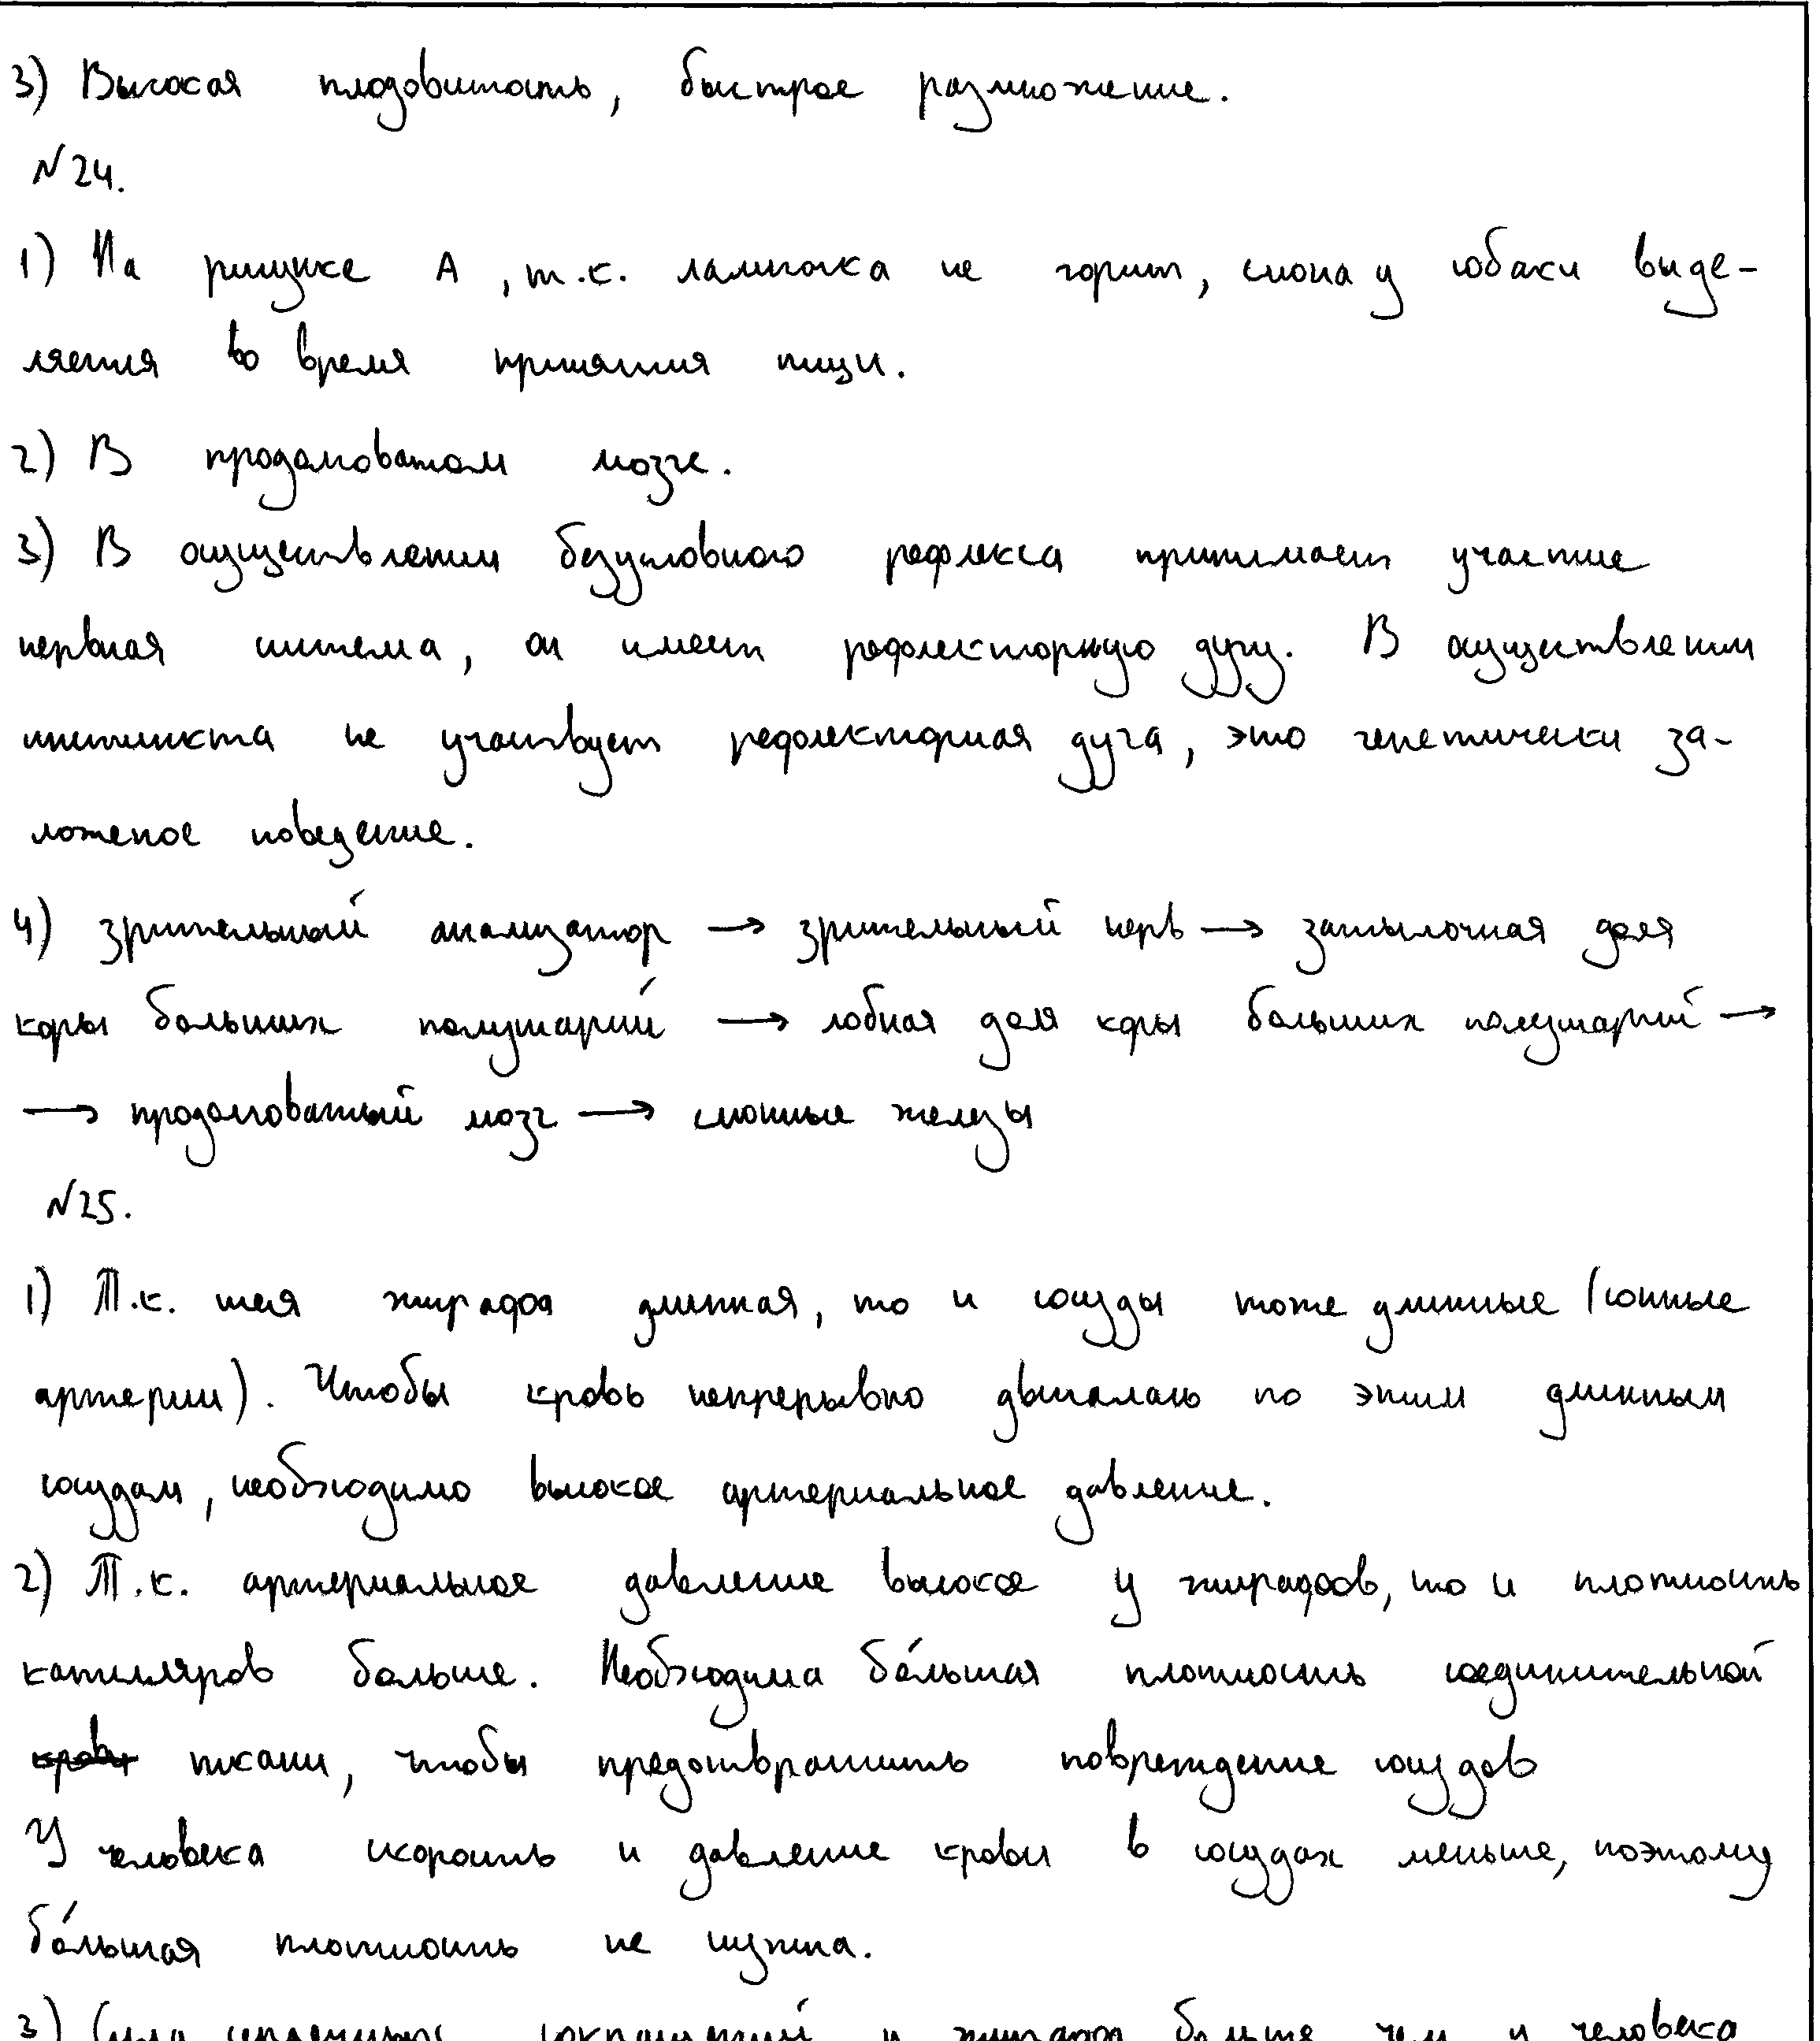 3) Высокая плодовитость, быстрое размножение.
№24.
1) На рисунке А, т.к. лампочка не горит, слюна у собаки выде-
ляется во время принятия пищи.
2) В продолговатом мозге.
3) В осуществлении безусловного рефлекса принимает участие
нервная система, он имеет рефлекторную дугу. В осуществлении
инстинкта не участвует рефлекторная дуга, это генетически за-
ложеное поведение.
4) зрительный анализатор → зрительный нерв → затылочная доля
коры больших полушарий → лобная доля коры больших полушарий →
→ продолговатый мозг → слюнные железы
№25.
1) Т.к. шея жирафа длинная, то и сосуды тоже длинные (сонные
артерии). Чтобы кровь непрерывно двигалась по этим длинным
сосудам, необходимо высокое артериальное давление.
2) Т.к. артериальное давление высокое у жирафов, то и плотность
капилляров больше. Необходима бо́льшая плотность соединительной
ткани, чтобы предотвратить повреждение сосудов
У человека скорость и давление крови в сосудах меньше, поэтому
бо́льшая плотность не нужна.
3) Сила сердечных сокращений у жирафа больше чем у человека